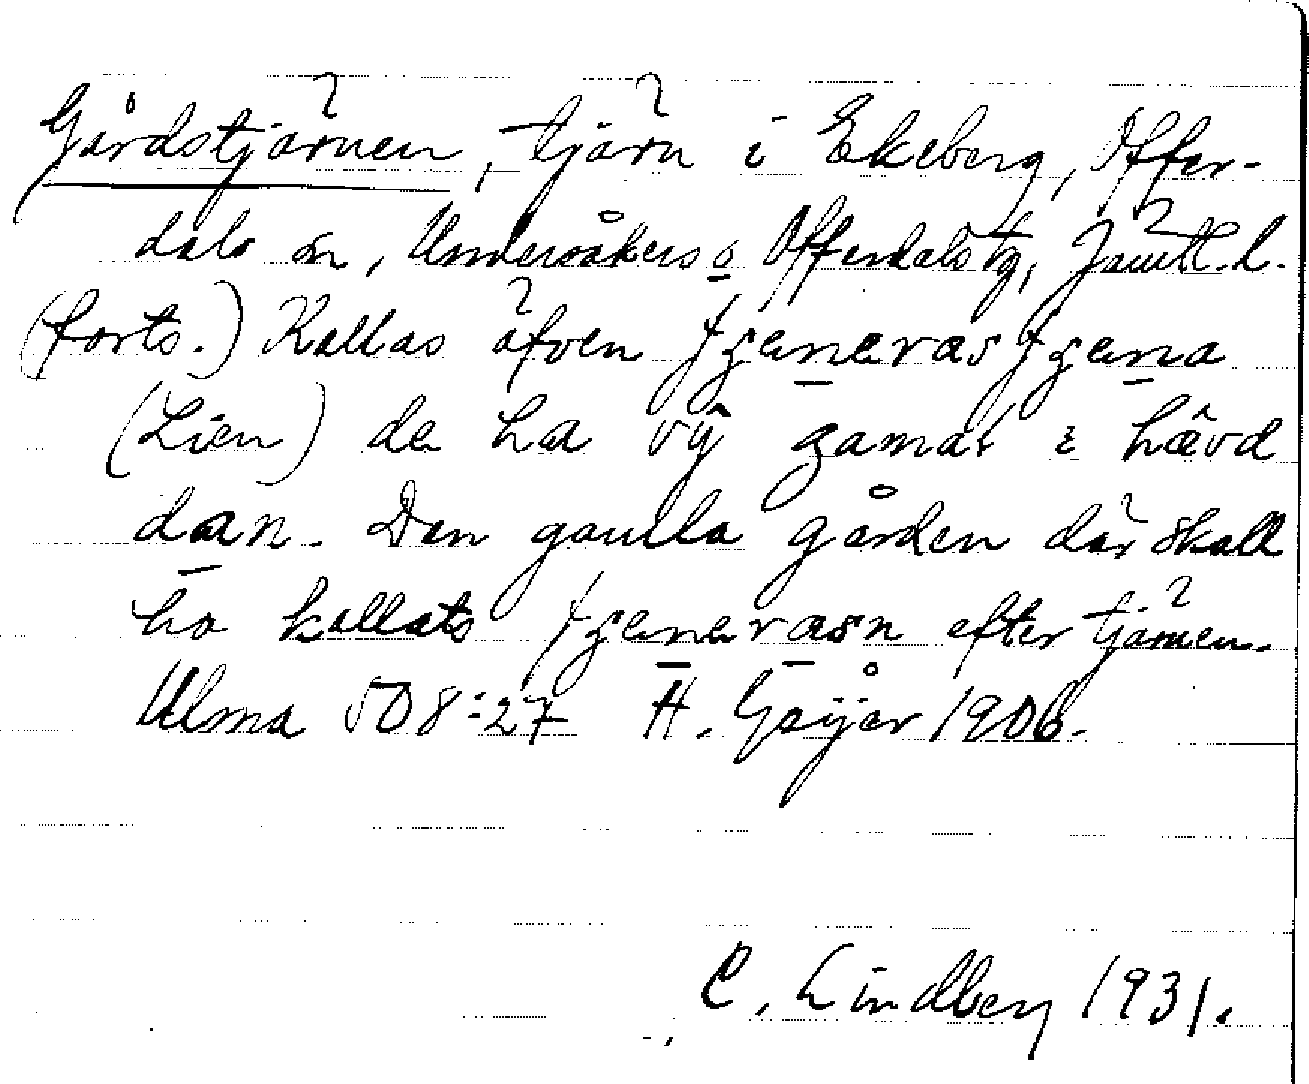 Gårdstjärnen, tjärn i Ekeberg, Offer-
dals sn, Undersåkers o Offerdals tg, Jämtl. l.
(forts.) Kallas äfven
(Lien) de ha vŷ gamał i hævd
dan. Den gamla gården där skall
ha kallats efter tjärnen.
Ulma 508:27 H. Geijer 1906.
C. Lindberg 1931.